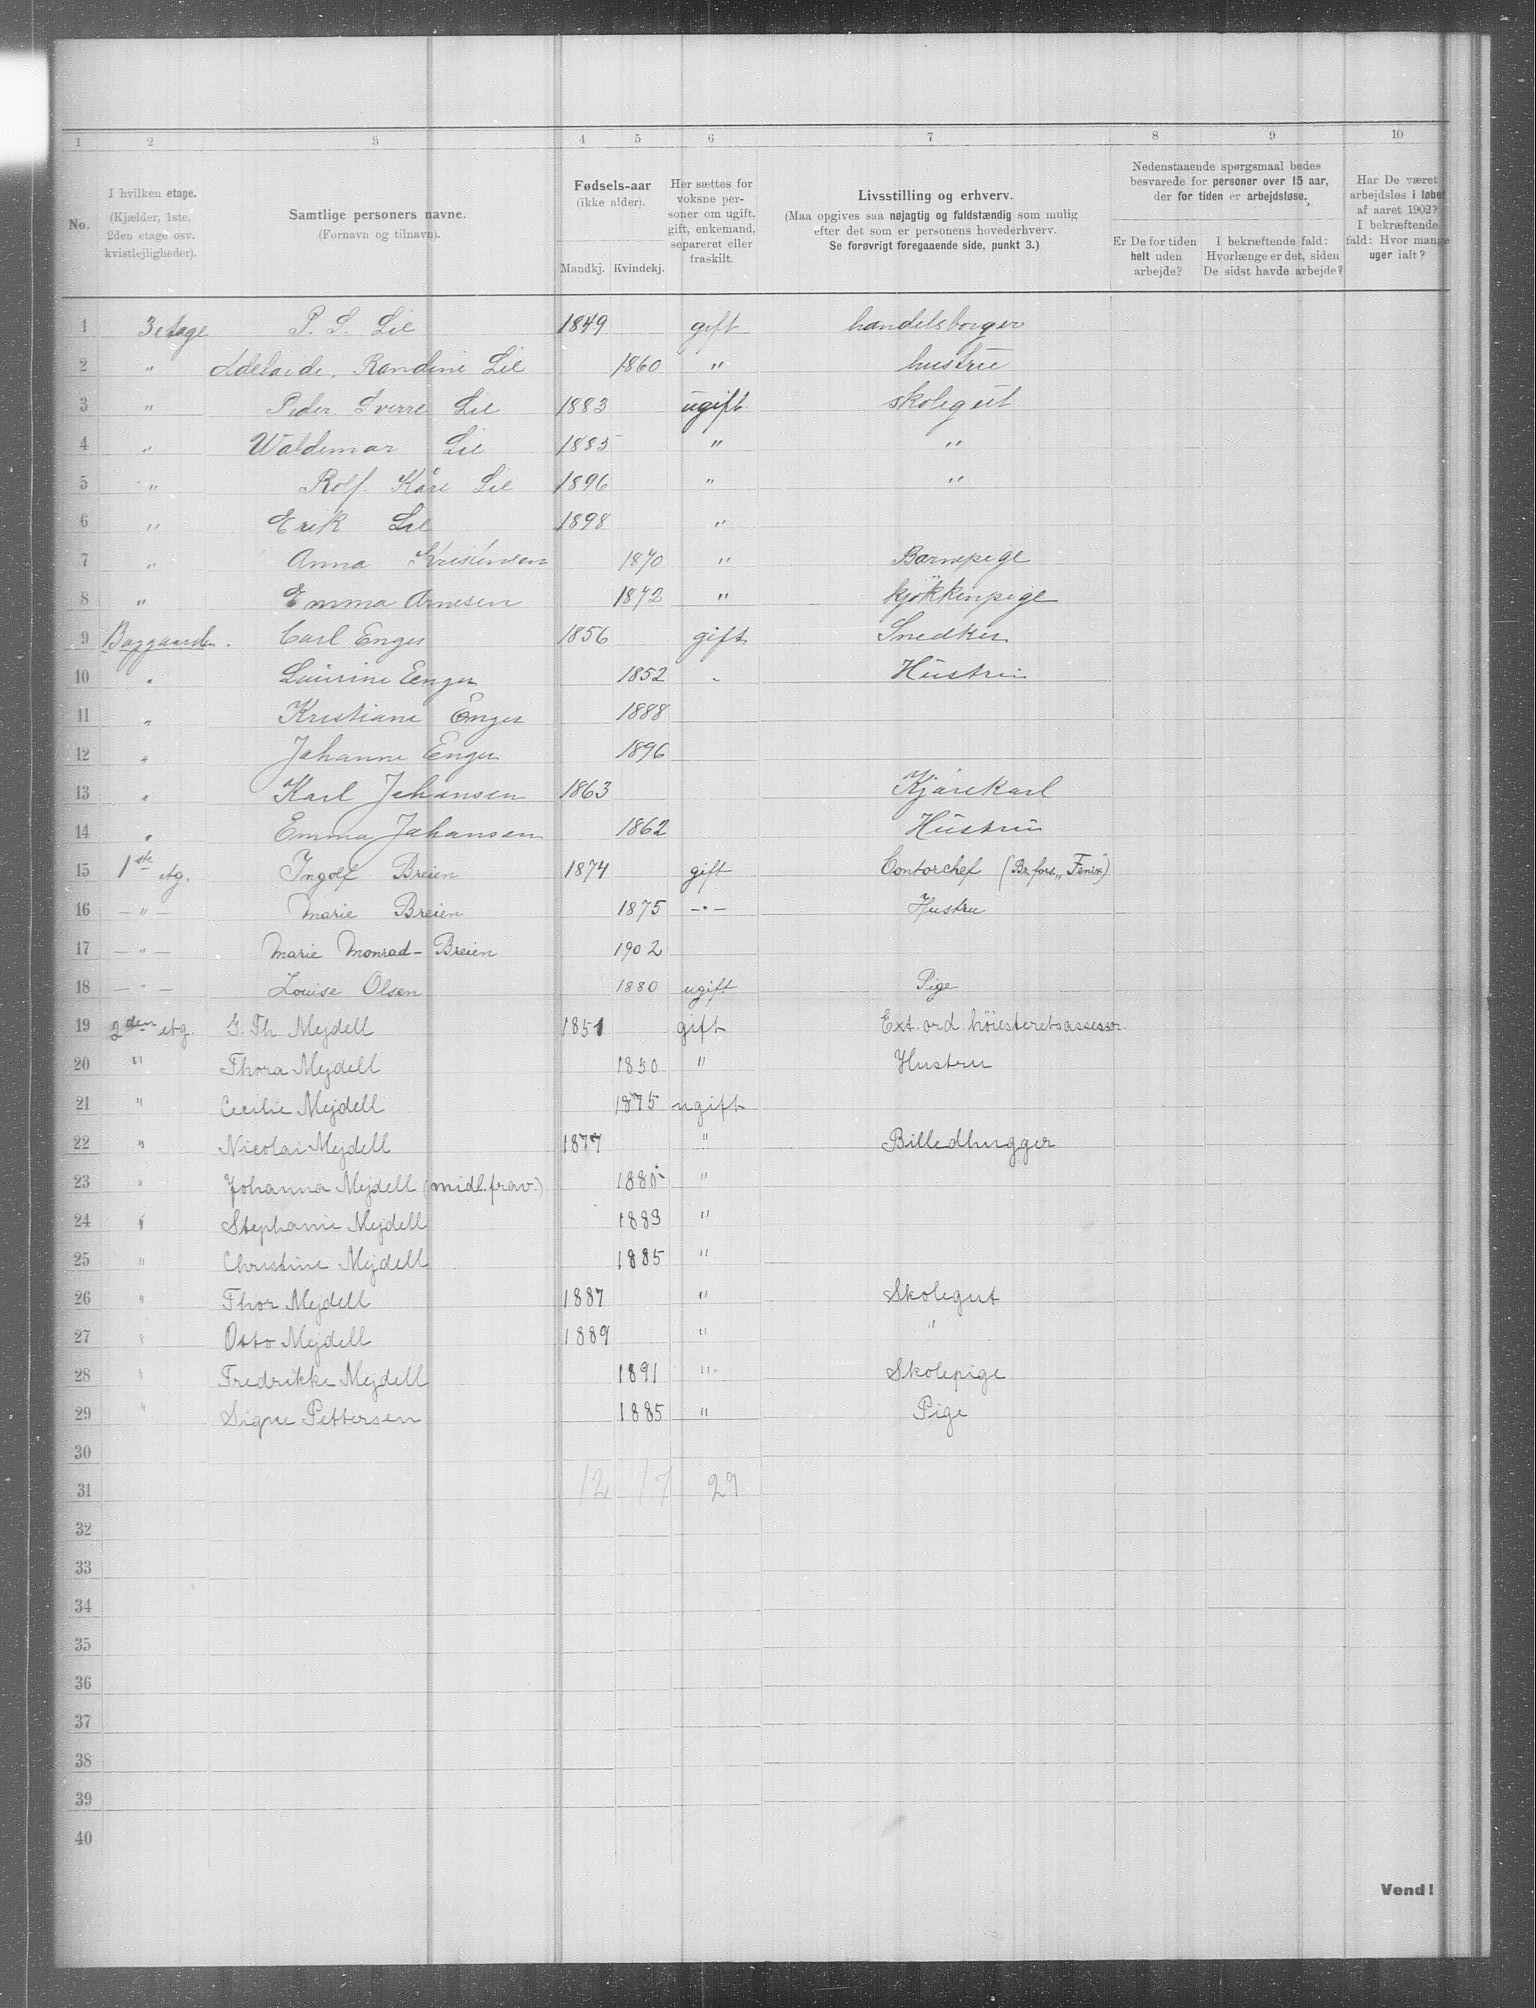 1 2 3 4 5 6 7 8 9 10
No. I hvilken etage. (Kjælder, 1ste, 2den etage osv. kvistlejligheder). Samtlige personers navne. (Fornavn og tilnavn). Fødsels-aar (ikke alder). Mandkj. Kvindekj. Her sættes for voksne personer om ugift, gift, enkemand, separeret eller fraskilt. Livsstilling og erhverv. (Maa opgives saa nøjagtig og fuldstændig som mulig efter det som er personens hovederhverv. Se forøvrigt foregaaende side, punkt 3.) Nedenstaaende spørgsmaal bedes besvarede for personer over 15 aar, der for tiden er arbejdsløse. Er De for tiden helt uden arbejde? I bekræftende fald: Hvorlænge er det, siden De sidst havde arbejde? Har De været arbejdsløs i løbet af aaret 1902? I bekræftende fald: Hvor mange uger ialt?
1 3 etage P. S. Lie 1849 gift handelsborger
2 " Adelaide. Randine Lie 1860 " hustrue
3 " Peder Sverre Lie 1883 ugift. skolegut
4 " Waldemar Lie 1885 " "
5 " Rolf. Kåre Lie 1896 " "
6 " Erik Lie 1898 "
7 " Anna Kristensen 1870 " Barnepige
8 " Emma Arnesen 1872 " kjøkkenpige
9 Baggaarden. Carl Enger 1856 gift Snedker
10 " Laurine Eenger 1852 " Hustru
11 " Kristiane Enger 1888
12 " Johanne Enger 1896
13 " Karl Johansen 1863 Kjørekarl
14 " Emma Johansen 1862 Hustru
15 1ste etg. Ingolf Breien 1874 gift Contorchef (Br. fors. „Fenix")
16 — " — Marie Breien 1875 — " — Hustru
17 — " — Marie Monrad-Breien 1902
18 — " — Louise Olsen 1880 ugift Pige
19 2den etg. G. Th. Mejdell 1851 gift Ext. ord. høiesteretsassessor
20 " Thora Mejdell 1850 " Hustru
21 " Cecilie Mejdell 1875 ugift
22 " Nicolai Mejdell 1877 " Billedhugger
23 " Johanna Mejdell (midl. frav.) 1880 "
24 " Stephanie Mejdell 1883 "
25 " Christine Mejdell 1885 "
26 " Thor Mejdell 1887 " Skolegut
27 " Otto Mejdell 1889 " "
28 " Fredrikke Mejdell 1891 " Skolepige
29 " Signe Pettersen 1885 " Pige
30
31 12 17 29
32
33
34
35
36
37
38
39
40
Vend!